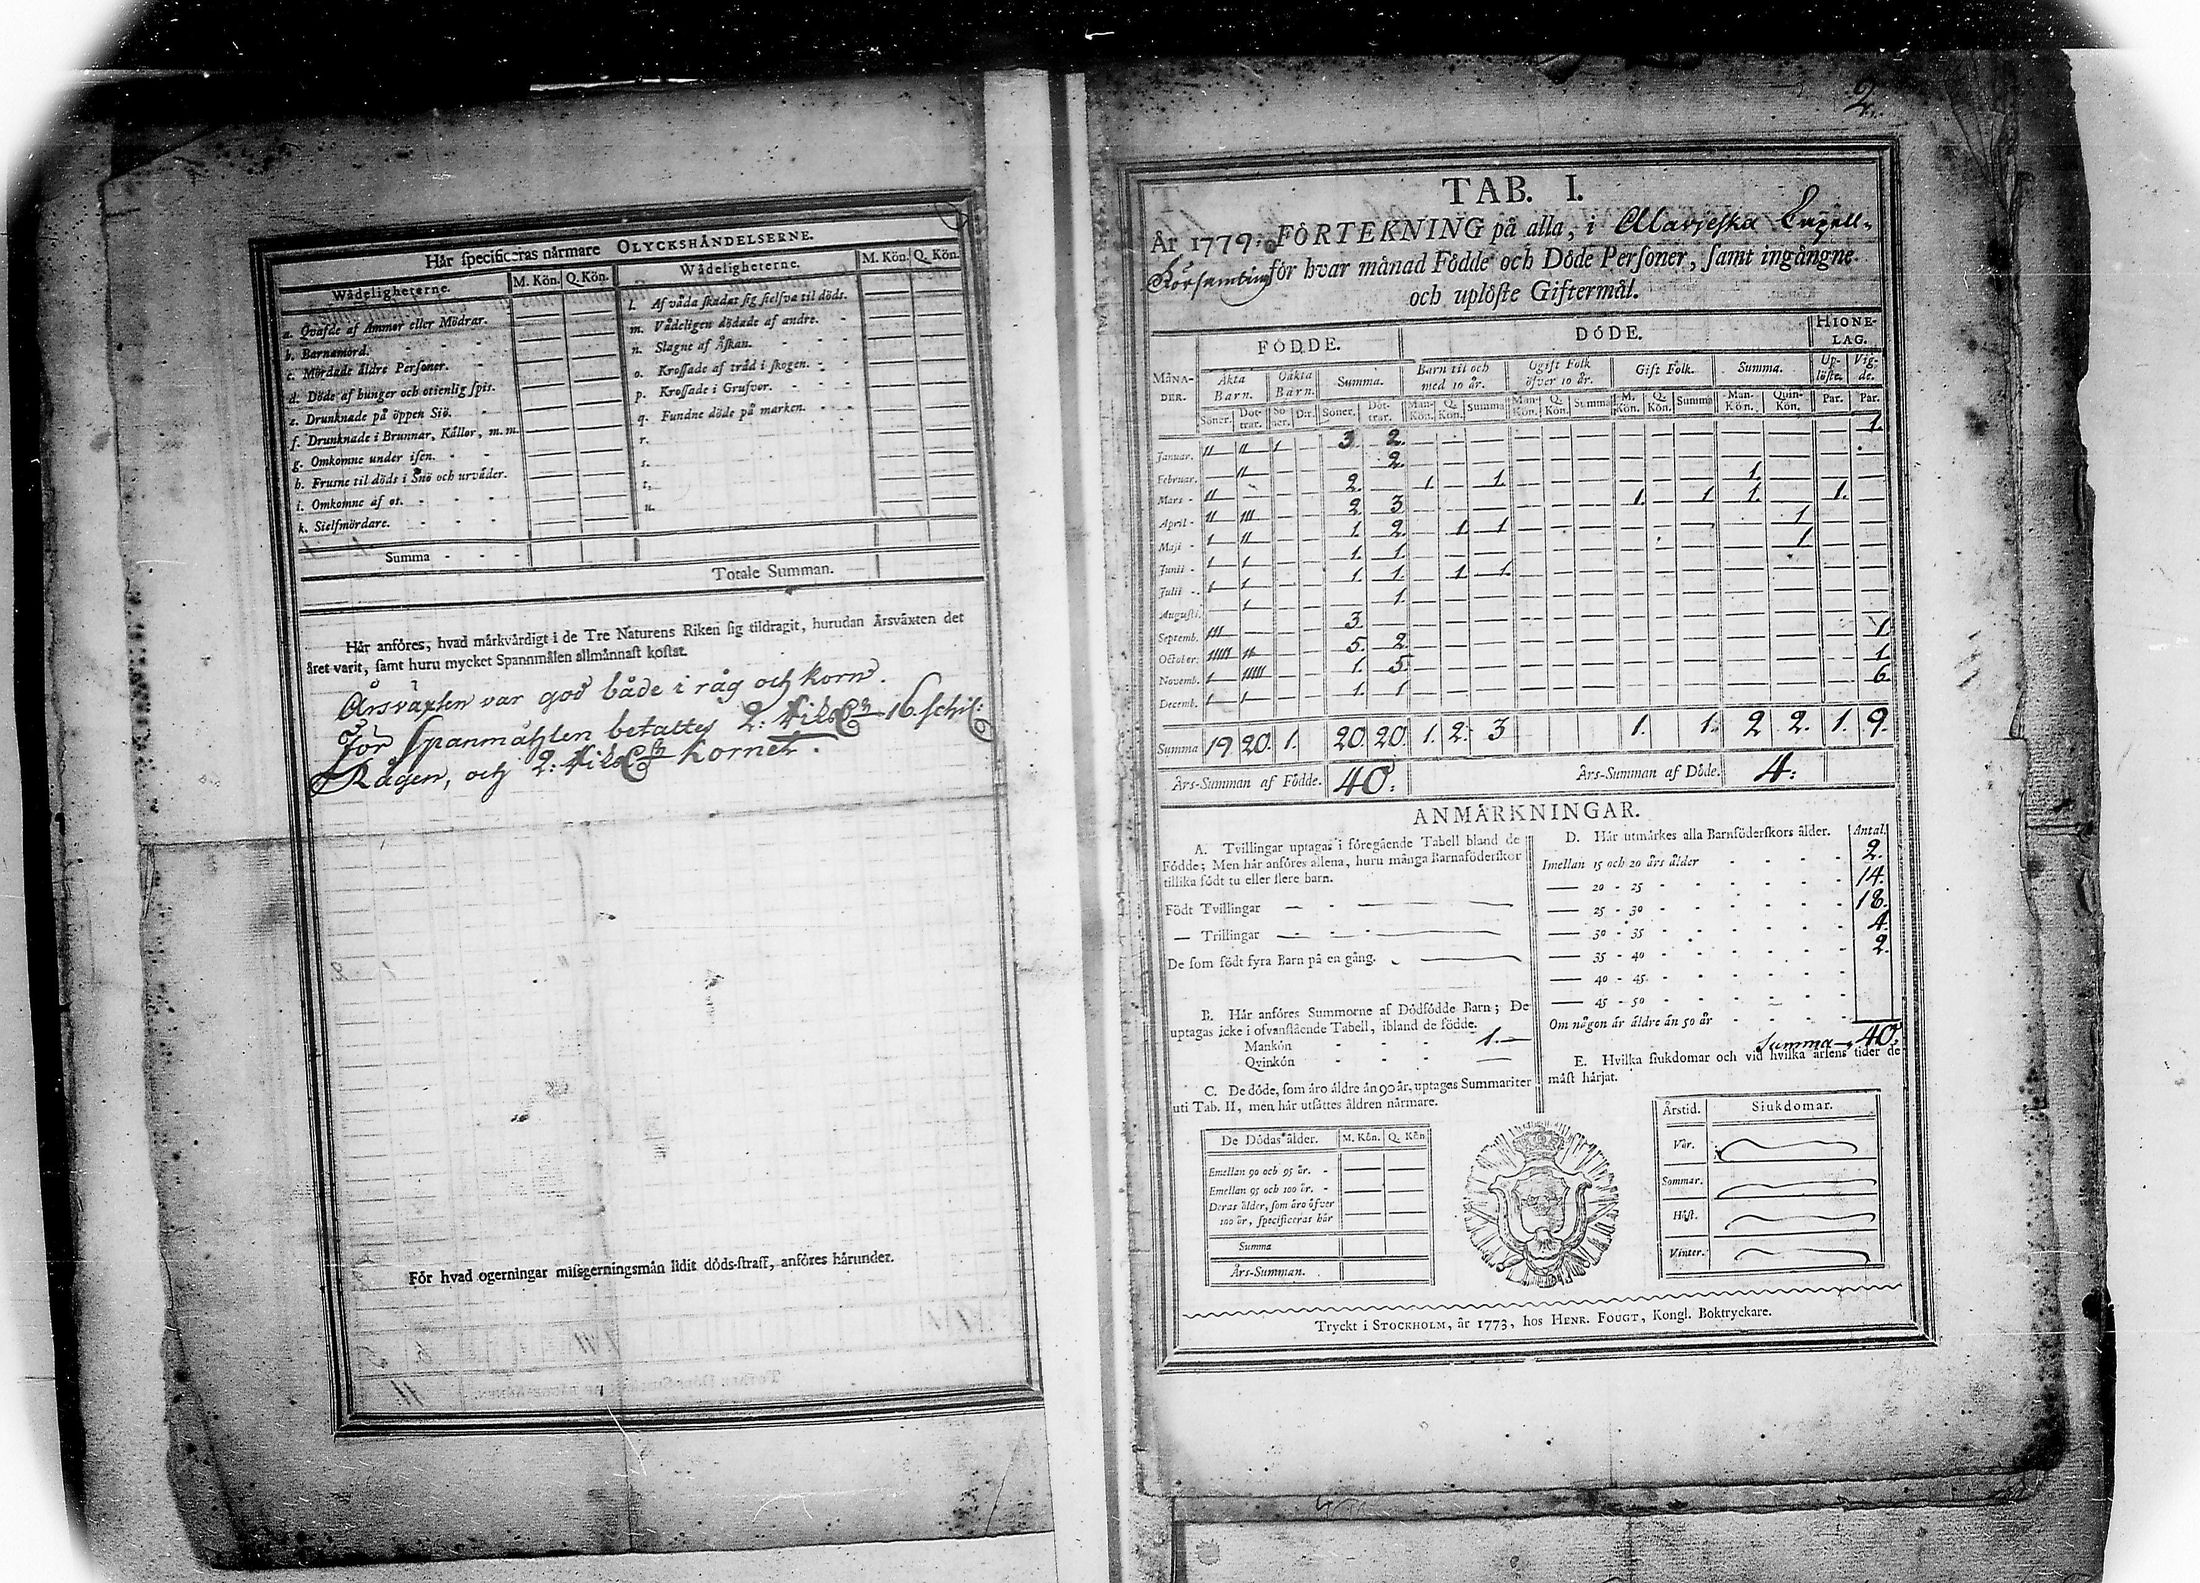 Hår specificeras nårmare OLYCKSHÅNDELSERNE.
Wådeligheterne. M. Kön. Q. Kön. Wådeligheterne. M. Kön. Q. Kön.
a. Qvafde af Ammor eller Mödrar.
b. Barnamord.
c. Mördade äldre Personer.
d. Döde af hunger och otienlig spis.
e. Drunknade på öppen Siö.
f. Drunknade i Brunnar, Kållor, m. m.
g. Omkomne under isen.
h. Frusne til döds i Snö och urvåder.
i. Omkomne af os.
k. Sielfmördare.
Summa
l. Af våda skadat sig sielfva til döds.
m. Vådeligen dödade af andre.
n. Slagne af Åskan.
o. Krossade af tråd i skogen.
p. Krossade i Grufvor.
q. Fundne döde på marken.
r.
s.
t.
u.
Totale Summan.
Hår anföres, hvad mårkvårdigt i de Tre Naturens Riken sig tildragit, hurudan Årsväxten det
året varit, samt huru mycket Spannmålen allmånnast kostat.
Årsväxten var god både i råg och korn.
För Spanmåhlen betaltes 2: 16. schil:
Rågen, och 2: Kornet.
För hvad ogerningar missgerningsmån lidit döds-straff, anföres hårunder.
2.
TAB. I.
År 1779. FÖRTEKNING på alla, i
för hvar månad Födde och Döde Personer, samt ingångne
och uplöste Giftermål.
MÅNADER. FÖDDE. DÖDE. HIONELAG.
Åkta Barn. Oåkta Barn. Summa. Barn til och med 10 år. Ogift Folk öfver 10 år. Gift Folk. Summa. Uplöste. Vigde.
Söner. Döttrar. Söner. D:r. Söner. Döttrar. Mankön. Q. Kön. Summa Mankön. Q. Kön. Summa M. Kön. Q. Kön. Summa Mankön. Quinkön. Par. Par.
Januar. 11 11 1 3. 2. 1.
Februar. 11 2.
Mars 11 2. 1. 1. 1.
April 11 111 2 3 1. 1 1. 1.
Maji 1 11 1. 2. 1 1 1
Junii 1 1 1. 1. 1
Julii 1 1 1. 1. 1 1.
Augusti. 1 1.
Septemb. 111 3.
October. 11111 11 5. 2. 1
Novemb. 1 11111 1. 5. 1
Decemb. 1 1 1. 1 6
Summa 19 20. 1. 20. 20. 1. 2. 3 1. 1. 2 2. 1. 9.
Års-Summan af Födde. 40. Års-Summan af Döde. 4.
ANMÅRKNINGAR.
A. Tvillingar uptagas i föregående Tabell bland de
Födde; Men hår anföres allena, huru många Barnaföderskor
tillika födt tu eller flere barn.
Födt Tvillingar
— Trillingar
De som födt fyra Barn på en gång.
B. Hår anföres Summorne af Dödfödde Barn; De
uptagas icke i ofvanstående Tabell, ibland de födde.
Mankön 1.
Qvinkön
C. De döde, som åro åldre ån 90 år, uptagas Summariter
uti Tab. II, men hår utsåttes åldren nårmare.
De Dödas ålder. M. Kön. Q. Kön
Emellan 90 och 95 år.
Emellan 95 och 100 år.
Deras ålder, som åro öfver
100 år, specificeras hår
Summa
Års-Summan.
D. Hår utmårkes alla Barnföderskors ålder. Antal.
Imellan 15 och 20 års ålder 2.
— 20 - 25 14.
— 25 - 30 18.
— 30 - 35 4.
— 35 - 40 2.
— 40 - 45
— 45 - 50
Om någon år åldre ån 50 år
Summa 40.
E. Hvilka siukdomar och vid hvilka årsens tider de
måst hårjat.
Årstid. Siukdomar.
Vår.
Sommar.
Höst.
Vinter.
Tryckt i STOCKHOLM, år 1773, hos HENR. FOUGT, Kongl. Boktryckare.